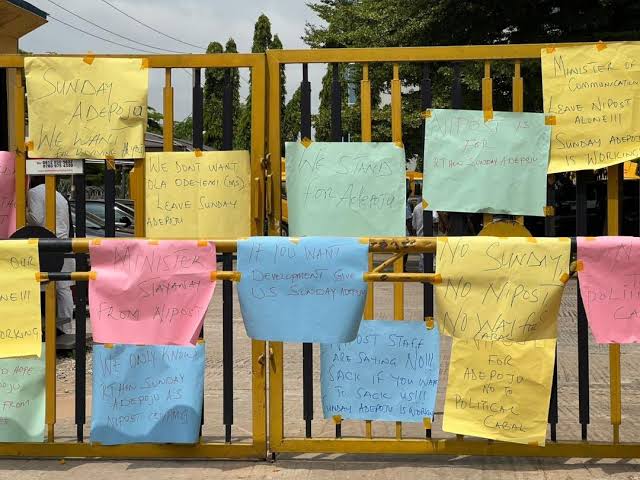 SUNDAY
ADEPOJU
WE WANT
WE DON'T WANT
OLA ODEYEMI (MS)
LEAVE SUNDAY
ADEPOJU
WE STAND
for Adepoju
NIPOST IS
FOR
RT HON SUNDAY ADEPOJU
MINISTER OF
COMMUNICATION
LEAVE NIPOST
ALONE!!!
SUNDAY ADEPOJU
IS WORKING
OUR
NE!!!
ORKING
MINISTER
STAYAWAY
FROM NIPOST
IF YOU WANT
DEVELOPMENT GIVE
US SUNDAY
NO SUNDAY,
NO NIPOST
NO WAY
POLITICAL
CABAL
HOPE
POJU
FROM
WE ONLY KNOW
RT HON SUNDAY
ADEPOJU AS
NIPOST
POST STAFF
ARE SAYING NO!!!
SACK IF YOU WANT
TO SACK US!!!
SUNDAY ADEPOJU IS WORKING
FOR
ADEPOJU
NO TO
POLITICAL
CABAL